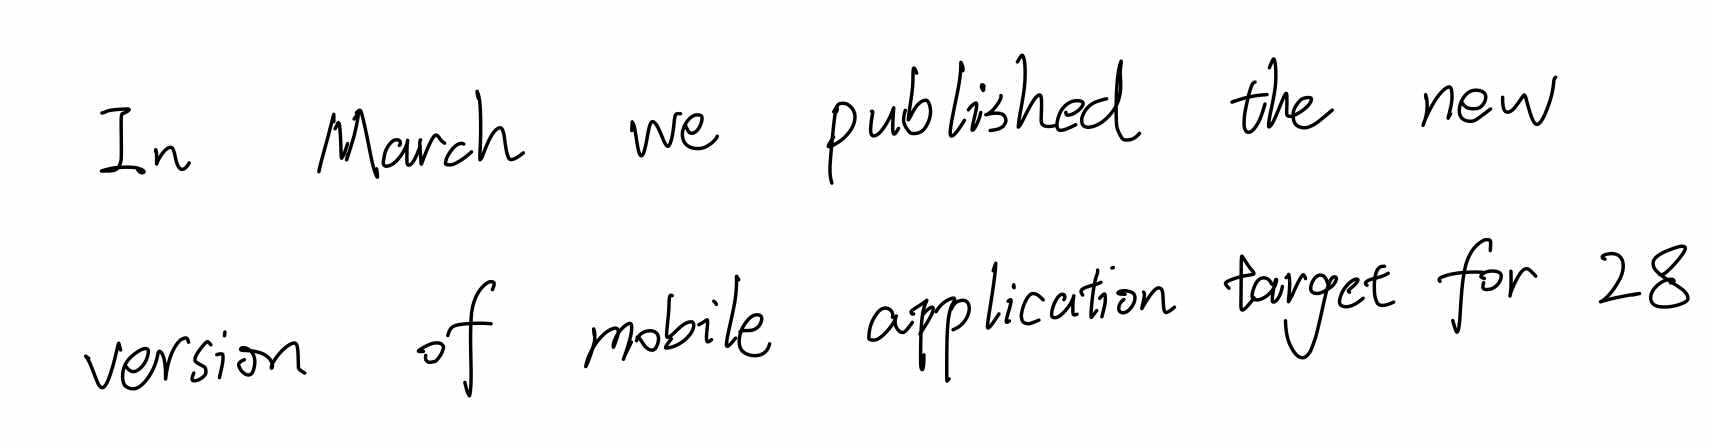 In March we published the new
version of mobile application target for 28